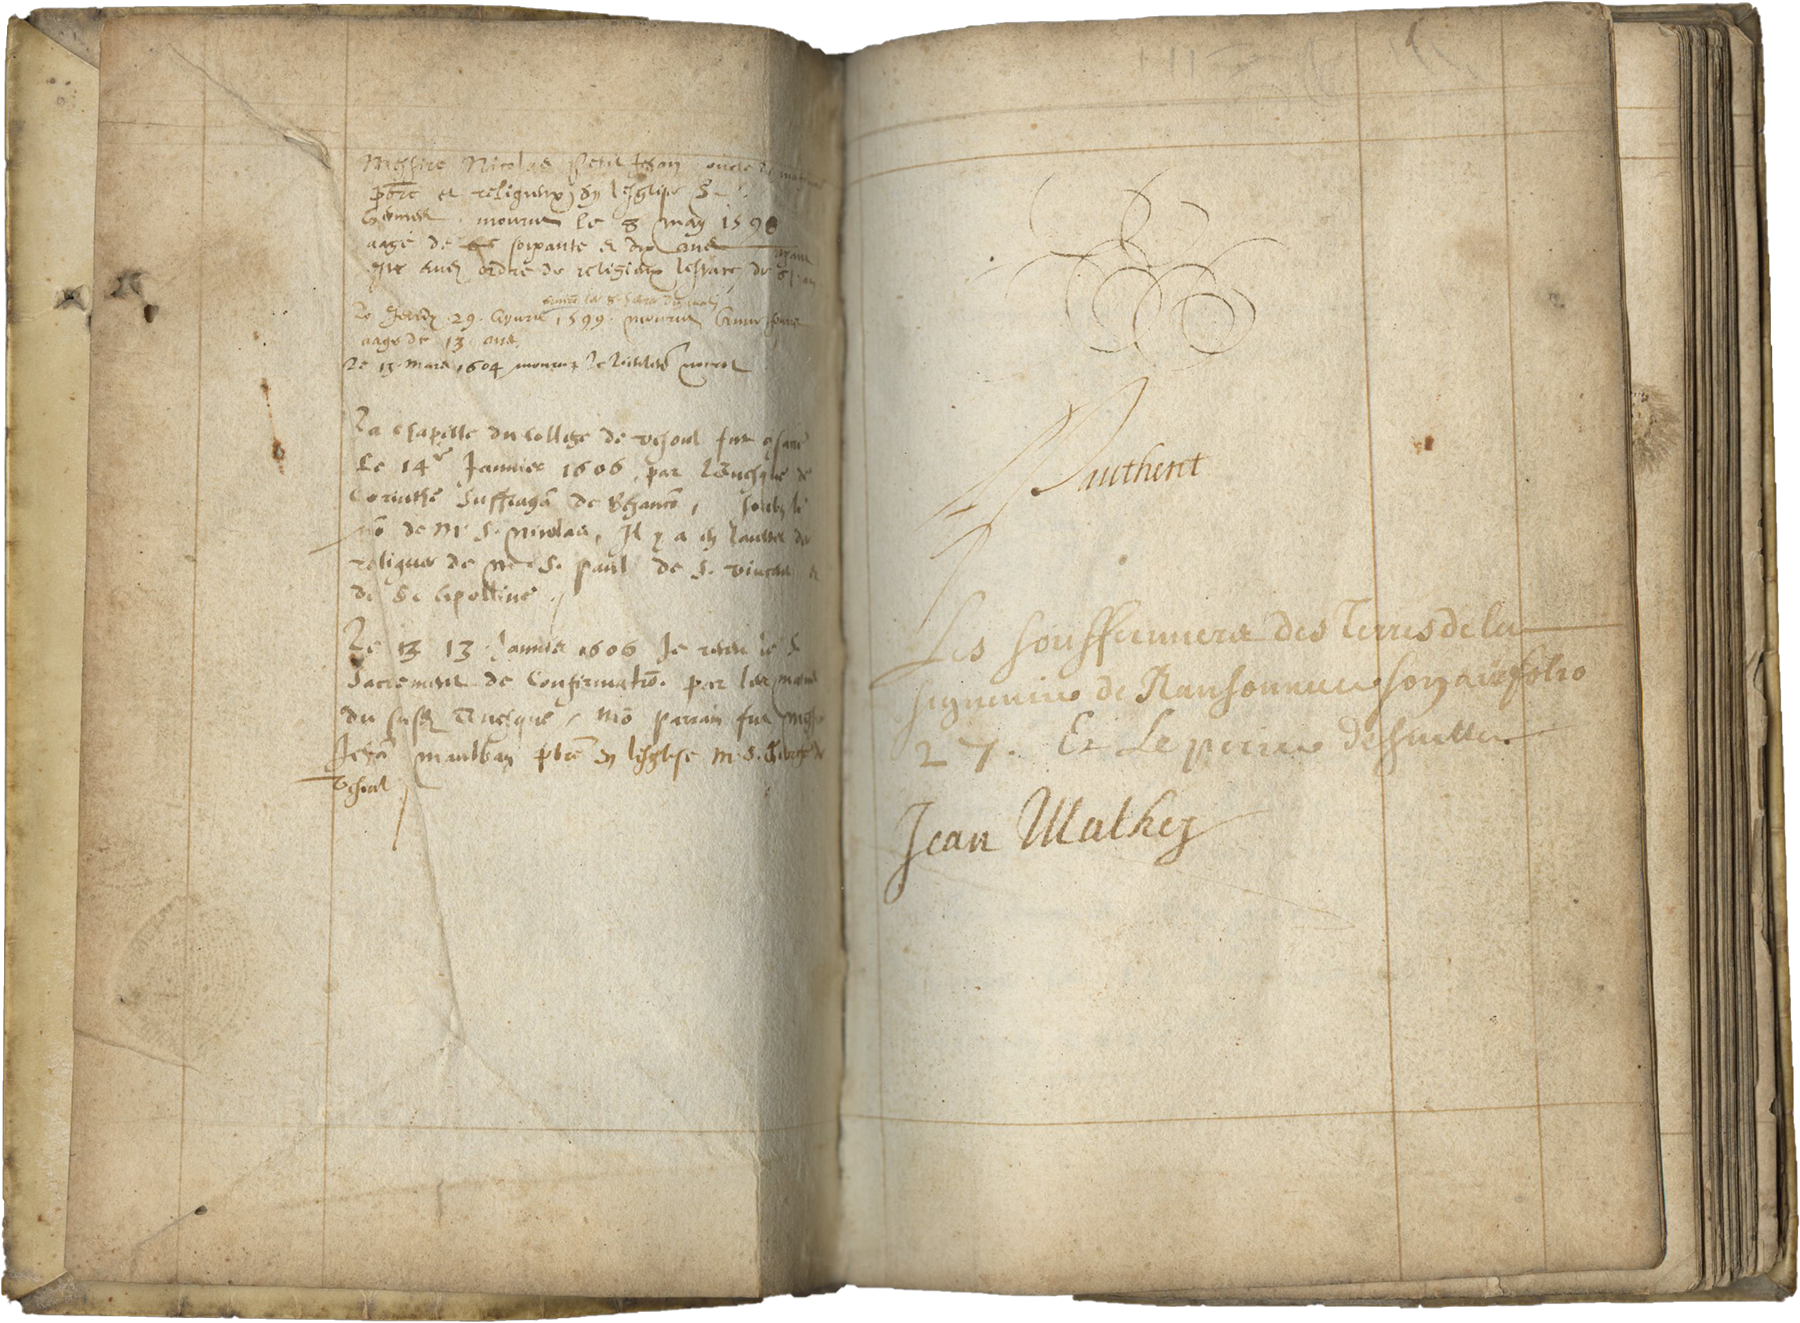 Messire Nicolas petit Jehan oncle
pbre et religieux en lesglise S.
mourut le 8 may 1598
aagé de soixante et dix ans
ordre de religieux lespace de
Le Jeudy 29. 1599. mourut
aagé de 13 ans.
Le 13 mars 1604 mourut le
La chapelle du college de vesoul fut
Le 14e Januier 1606, par leuesque de
Corinthe Suffragā de Besancō, soub le
nō de Mr S. Nicolas, Il y a en lautel des
reliques de Mr S. paul de S. vincent et
de Ste Apolline.
Le 13 Januier 1606 Je receu le S
Sacrement de Confirmatiō. par les mains
du susd Euesque, Mō parrain fut Mesre
Jehā maulbay pbre en lesglise Mr S. George de
vesoul
Pauthent
Les souffermiers des Terres de la
signeurie de Ransonniere son au folio
27. Et Le
Jean Mathey